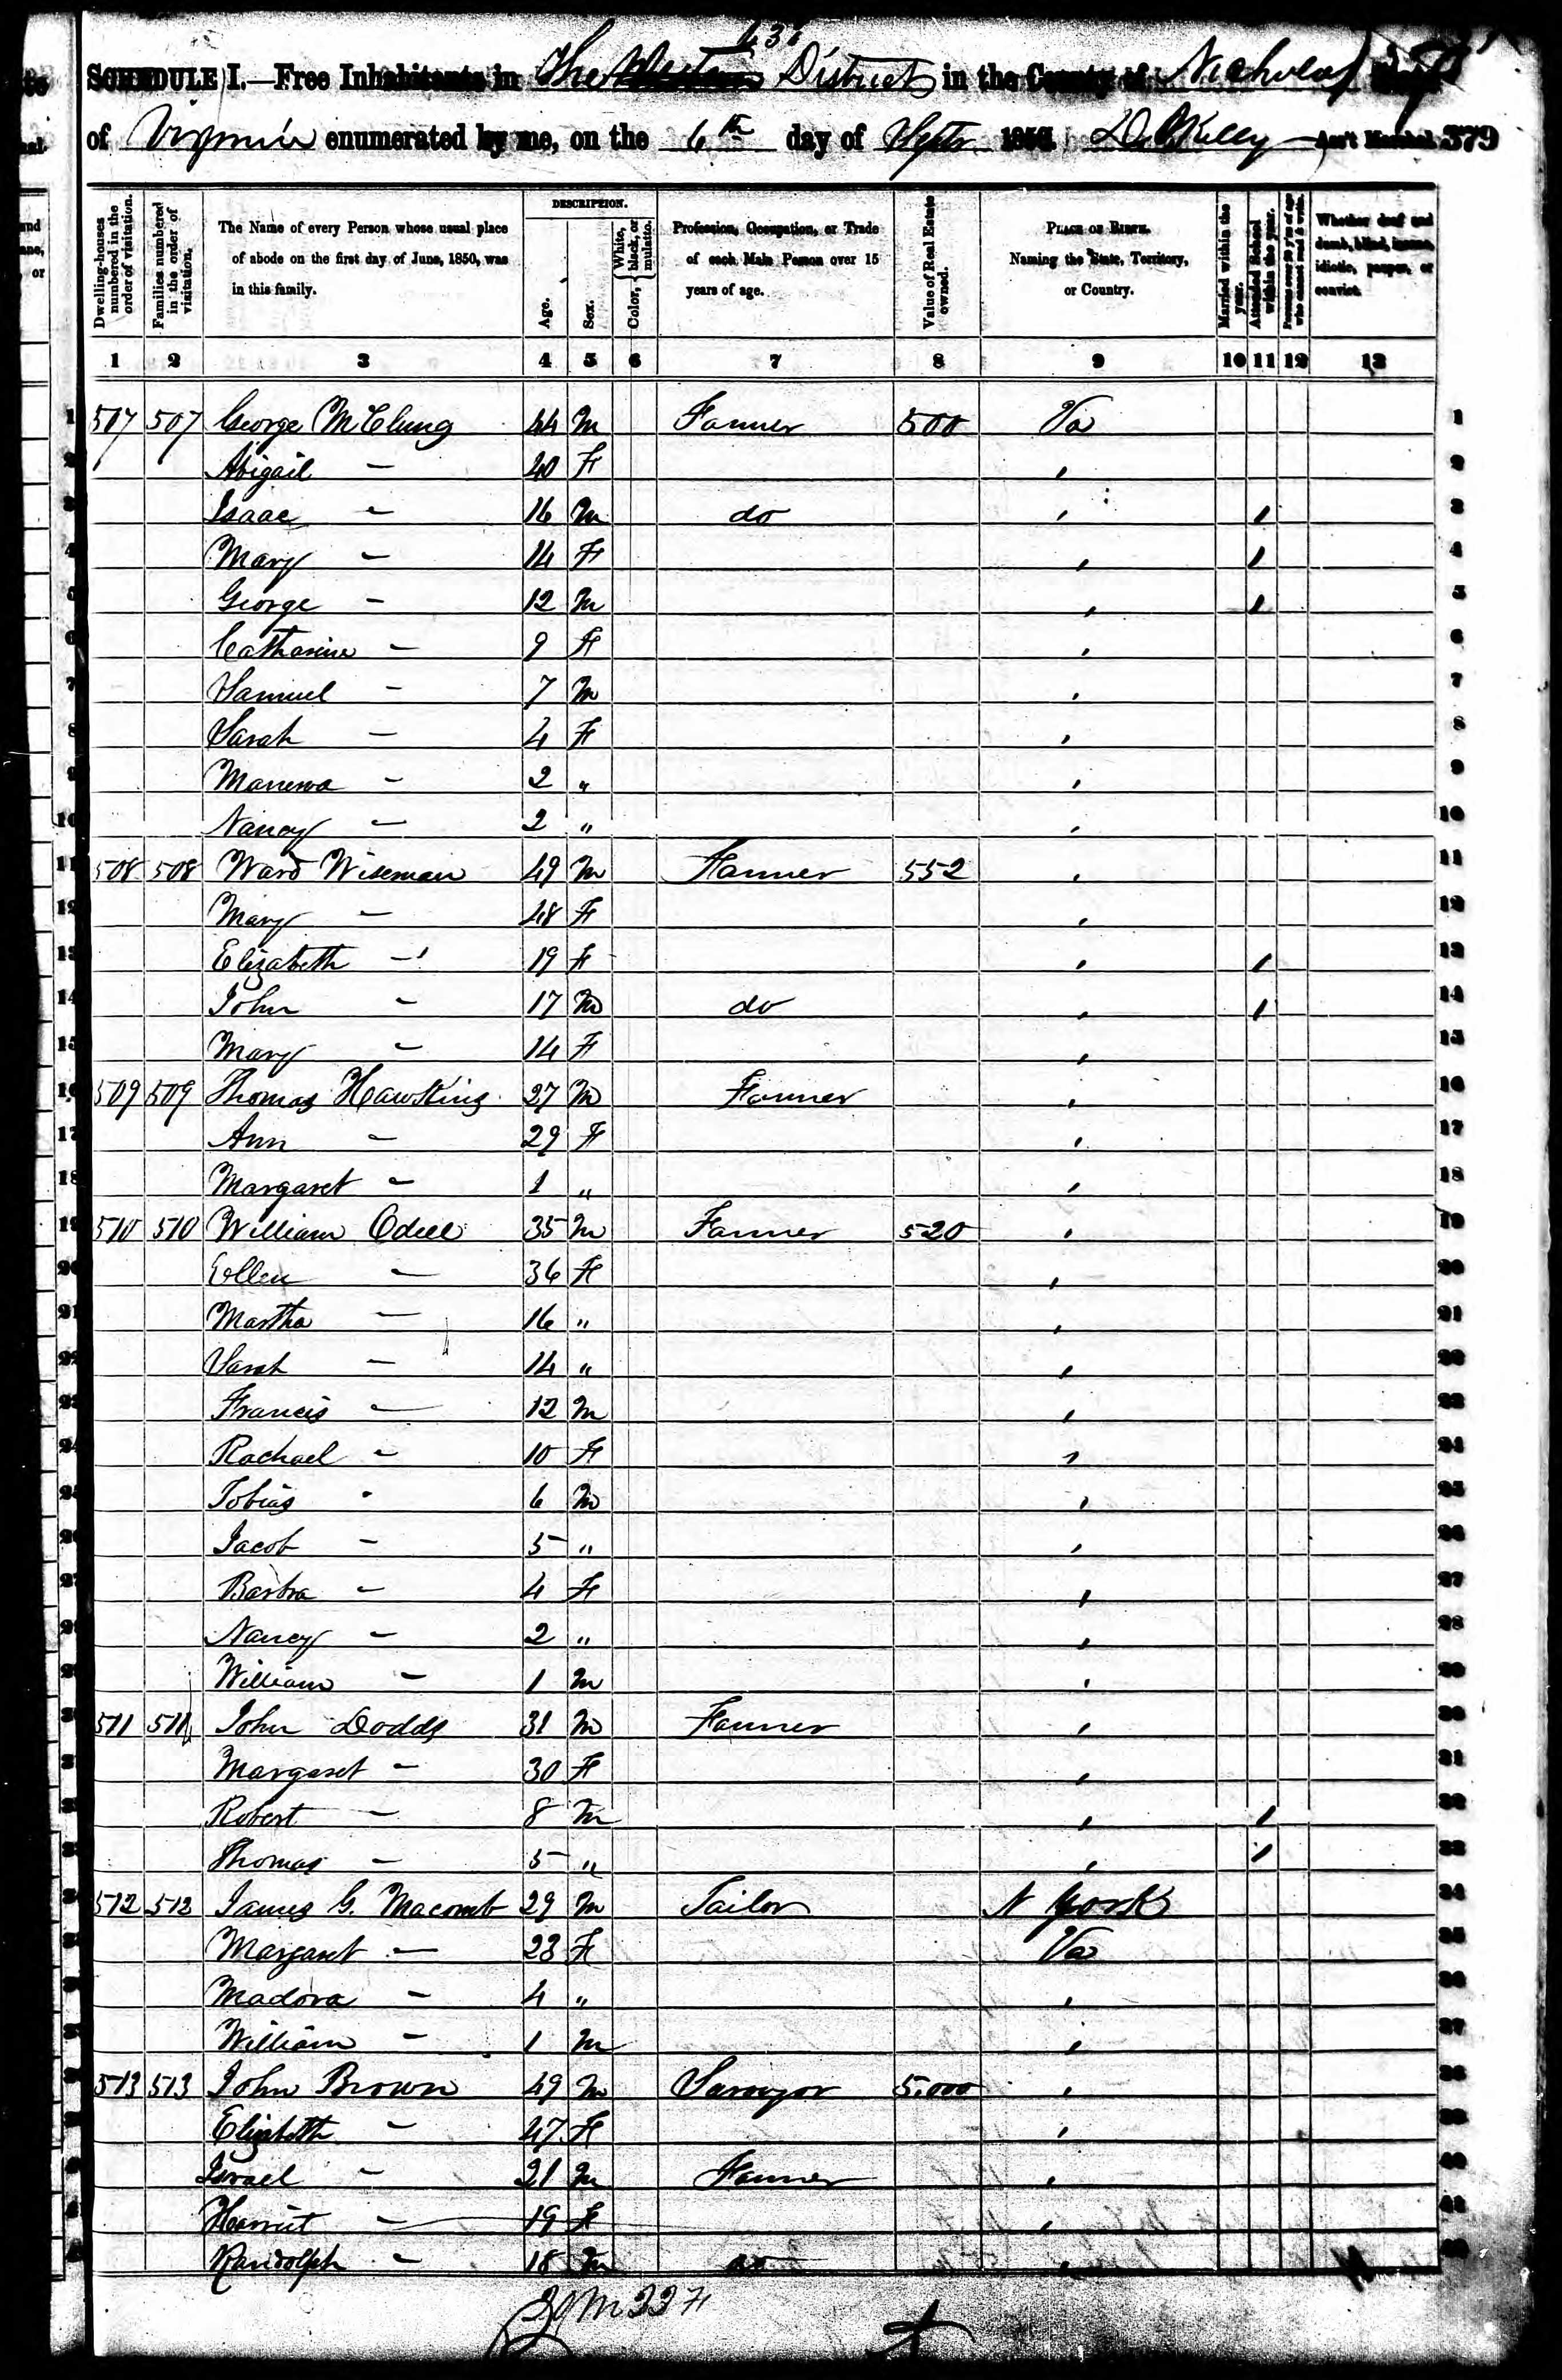 SCHEDULE I.—Free Inhabitants in The District in the County of Nicholas
of Virginia enumerated by me, on the 6th day of Septr 1850. Ass't Marshal. 379
Dwelling-houses numbered in the order of visitation.
Families numbered in the order of visitation.
The Name of every Person whose usual place of abode on the first day of June, 1850, was in this family.
DESCRIPTION.
Age.
Sex.
Color, { White, black, or mulatto.
Profession, Occupation, or Trade of each Male Person over 15 years of age.
Value of Real Estate owned.
PLACE OF BIRTH. Naming the State, Territory, or Country.
Married within the year.
Attended School within the year.
Persons over 20 y'rs of age who cannot read & write.
Whether deaf and dumb, blind, insane, idiotic, pauper, or convict.
1 2 3 4 5 6 7 8 9 10 11 12 13
1 507 507 George McClung 44 M Farmer 500 Va 1
2 Abigail — 40 F , 2
3 Isaac — 16 M do , 1 3
4 Mary — 14 F , 1 4
5 George — 12 M , 1 5
6 Catharine — 9 F , 6
7 Samuel — 7 M , 7
8 Sarah — 4 F , 8
9 — 2 " , 9
10 Nancy — 2 " , 10
11 508 508 Ward Wiseman 49 M Farmer 552 , 11
12 Mary — 48 F , 12
13 Elizabeth — 19 F , 1 13
14 John — 17 M do , 1 14
15 Mary — 14 F , 15
16 509 509 Thomas Hawkins 27 M Farmer , 16
17 Ann — 29 F , 17
18 Margaret — 1 " , 18
19 510 510 William Odell 35 M Farmer 520 , 19
20 Ellen — 36 F , 20
21 Martha — 16 " , 21
22 Sarah — 14 " , 22
23 Francis — 12 M , 23
24 Rachael — 10 F , 24
25 Tobias — 6 M , 25
26 Jacob — 5 " , 26
27 Barbra — 4 F , 27
28 Nancy — 2 " , 28
29 William — 1 M , 29
30 511 511 John Dodds 31 M Farmer , 30
31 Margaret — 30 F , 31
32 Robert — 8 M , 1 32
33 Thomas — 5 " , 1 33
34 512 512 James G. Macomb 29 M Tailor N York 34
35 Margaret — 23 F Va 35
36 Madora — 4 " , 36
37 William — 1 M , 37
38 513 513 John Brown 49 M Surveyor 5,000 , 38
39 Elizabeth — 47 F , 39
40 Israel — 21 M Farmer , 40
41 Harriet — 19 F , 41
42 Randolph — 18 M do , 42